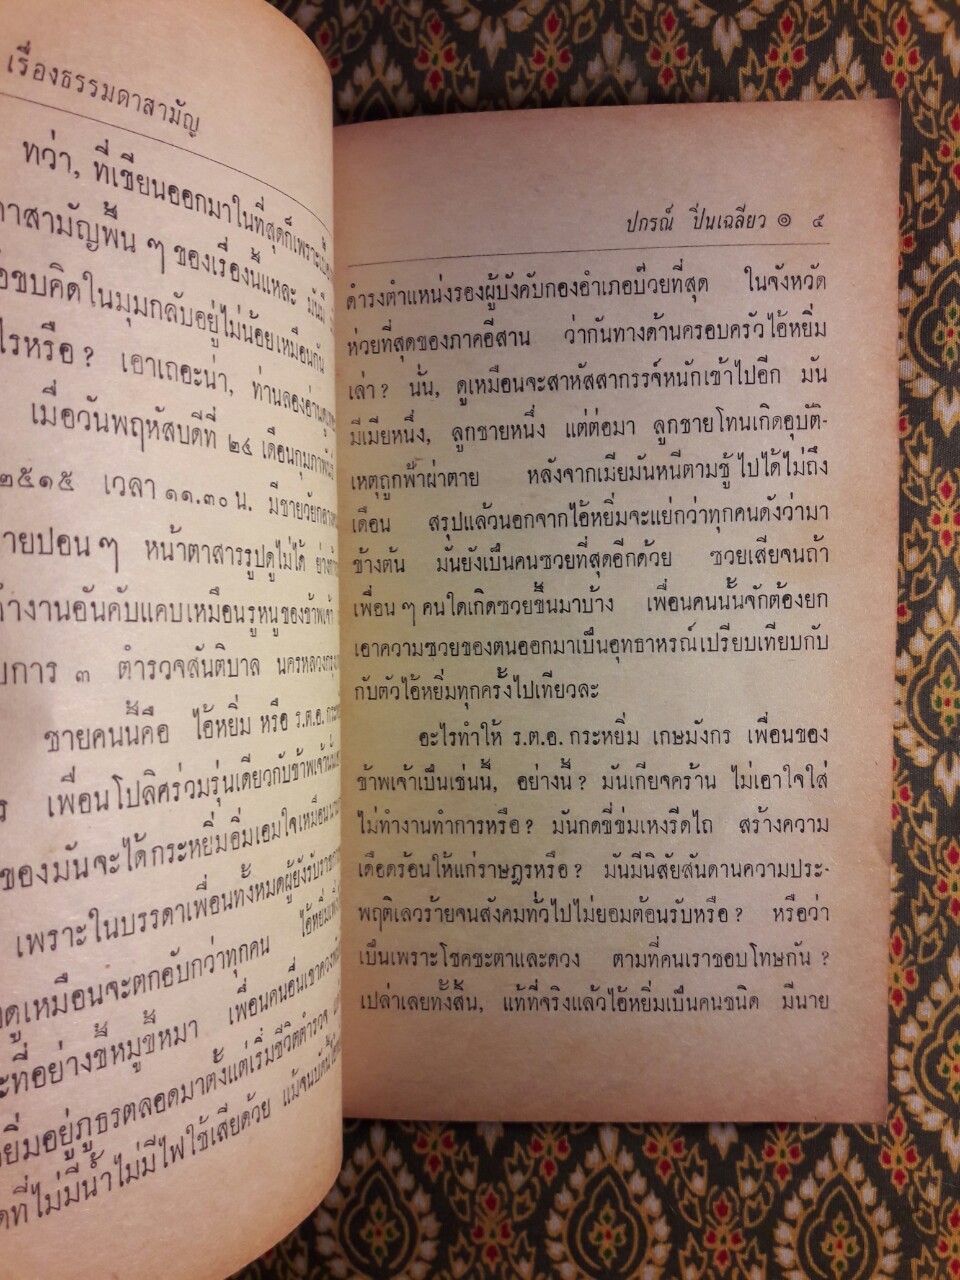 เรื่องธรรมดาสามัญ
ทว่า, ที่เขียนออกมาในที่สุดก็เพราะ
าสามัญพื้น ๆ ของเรื่องนี้แหละ มันมี
ขบคิดในมุมกลับอยู่ไม่น้อยเหมือนกัน
ไรหรือ? เอาเถอะน่า, ท่านลองอ่านดู
เมื่อวันพฤหัสบดีที่ ๒๔ เดือนกุมภาพันธ์
๒๕๑๕ เวลา ๑๑.๓๐ น. มีชายวัยกลาง
ายปอน ๆ หน้าตาสารรูปดูไม่ได้ ย่าง
ทำงานอันคับแคบเหมือนรูหนูของข้าพเจ้า
การ ๓ ตำรวจสันติบาล นครหลวง
ชายคนนี้คือ ไอ้หยิ่ม หรือ ร.ต.อ. กระ
ร เพื่อนโปลิศร่วมรุ่นเดียวกับข้าพเจ้า
ของมันจะได้กระหยิ่มอิ่มเอมใจเหมือน
เพราะในบรรดาเพื่อนทั้งหมดผู้ยังรับราชการ
ดูเหมือนจะตกอับกว่าทุกคน ไอ้หยิ่ม
ะที่อย่างขี้หมูขี้หมา เพื่อนคนอื่นเขา
ยิ่มอยู่ภูธรตลอดมาตั้งแต่เริ่มชีวิตตำรวจ
ที่ไม่มีน้ำไม่มีไฟใช้เสียด้วย แม้จน
ปกรณ์ ปิ่นเฉลียว ๏ ๕
ดำรงตำแหน่งรองผู้บังคับกองอำเภอบ๊วยที่สุด ในจังหวัด
ห่วยที่สุดของภาคอีสาน ว่ากันทางด้านครอบครัวไอ้หยิ่ม
เล่า? นั่น, ดูเหมือนจะสาหัสสากรรจ์หนักเข้าไปอีก มัน
มีเมียหนึ่ง, ลูกชายหนึ่ง แต่ต่อมา ลูกชายโทนเกิดอุบัติ-
เหตุถูกฟ้าผ่าตาย หลังจากเมียมันหนีตามชู้ไปได้ไม่ถึง
เดือน สรุปแล้วนอกจากไอ้หยิ่มจะแย่กว่าทุกคนดังว่ามา
ข้างต้น มันยังเป็นคนซวยที่สุดอีกด้วย ซวยเสียจนถ้า
เพื่อน ๆ คนใดเกิดซวยขึ้นมาบ้าง เพื่อนคนนั้นจักต้องยก
เอาความซวยของตนออกมาเป็นอุทธาหรณ์เปรียบเทียบกับ
กับตัวไอ้หยิ่มทุกครั้งไปเทียวละ
อะไรทำให้ ร.ต.อ. กระหยิ่ม เกษมังกร เพื่อนของ
ข้าพเจ้าเป็นเช่นนี้, อย่างนี้? มันเกียจคร้าน ไม่เอาใจใส่
ไม่ทำงานทำการหรือ? มันกดขี่ข่มเหงรีดไถ สร้างความ
เดือดร้อนให้แก่ราษฎรหรือ? มันมีนิสัยสันดานความประ-
พฤติเลวร้ายจนสังคมทั่วไปไม่ยอมต้อนรับหรือ? หรือว่า
เป็นเพราะโชคชะตาและดวง ตามที่คนเราชอบโทษกัน?
เปล่าเลยทั้งสิ้น, แท้ที่จริงแล้วไอ้หยิ่มเป็นคนชนิด มีนาย